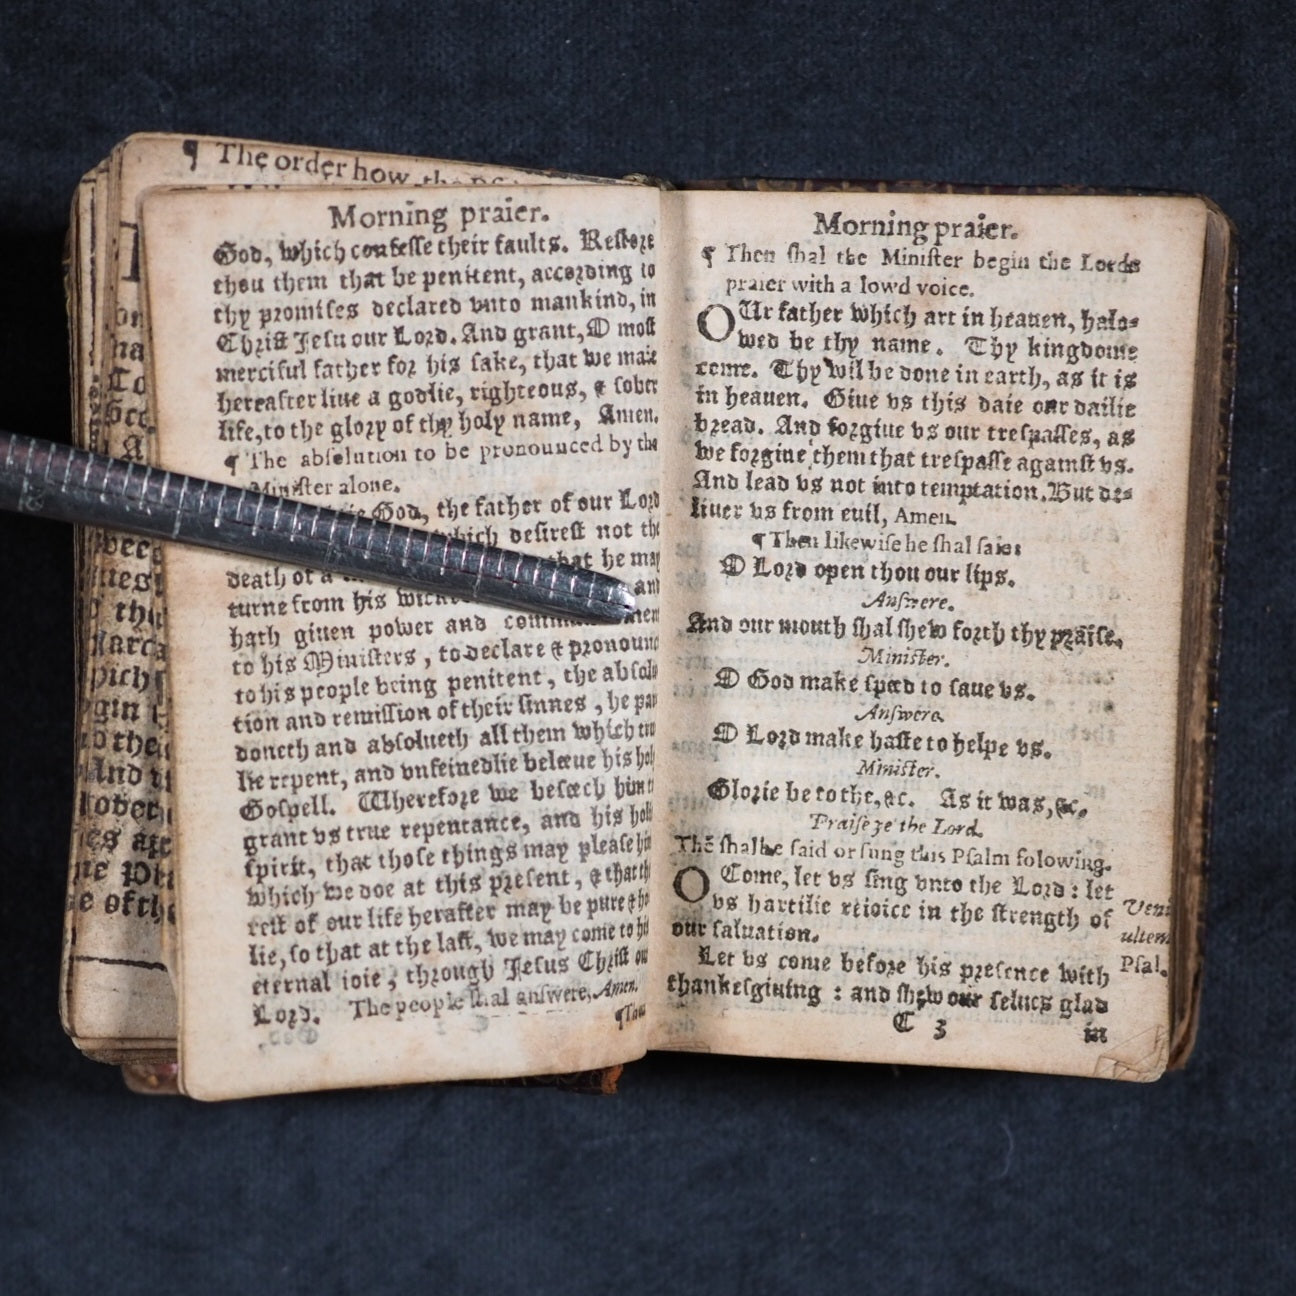 ¶ The order how the
Morning praier.
God, which confesse their faults. Restore
thou them that be penitent, according to
thy promises declared vnto mankind, in
Christ Jesu our Lord. And grant, O most
merciful father for his sake, that we maie
hereafter liue a godlie, righteous, & sober
life, to the glory of thy holy name, Amen.
¶ The absolution to be pronounced by the
Minister alone.
God, the father of our Lord
which desirest not the
death of a that he may
turne from his and
hath giuen power and
to his Ministers, to declare & pronounc
to his people being penitent, the absolu
tion and remission of their sinnes, he par
doneth and absolueth all them which tru
lie repent, and vnfeinedlie beleeue his hol
Gospell. Wherefore we beseech him t
grant vs true repentance, and his holi
spirit, that those things may please hi
which we doe at this present, & that th
rest of our life herafter may be pure & ho
lie, so that at the last, we may come to his
eternal ioie, through Jesus Christ our
Lord. The people shal answere, Amen.
¶ Then
Morning praier.
¶ Then shal the Minister begin the Lords
praier with a lowd voice.
OUr father which art in heauen, halo=
wed be thy name. Thy kingdome
come. Thy wil be done in earth, as it is
in heauen. Giue vs this daie our dailie
bread. And forgiue vs our trespasses, as
we forgiue them that trespasse against vs.
And lead vs not into temptation. But de=
liuer vs from euil, Amen.
¶ Then likewise he shal saie:
O Lord open thou our lips.
Answere.
And our mouth shal shew forth thy praise.
Minister.
O God make speed to saue vs.
Answere.
O Lord make haste to helpe vs.
Minister.
Glorie be to the, &c. As it was, &c.
Praise ye the Lord.
Thē shalbe said or sung this Psalm folowing.
O Come, let vs sing vnto the Lord: let
vs hartilie reioice in the strength of
our saluation.
Veni
ultem
Psal.
Let vs come before his presence with
thankesgiuing: and shew our selues glad
C 3
in